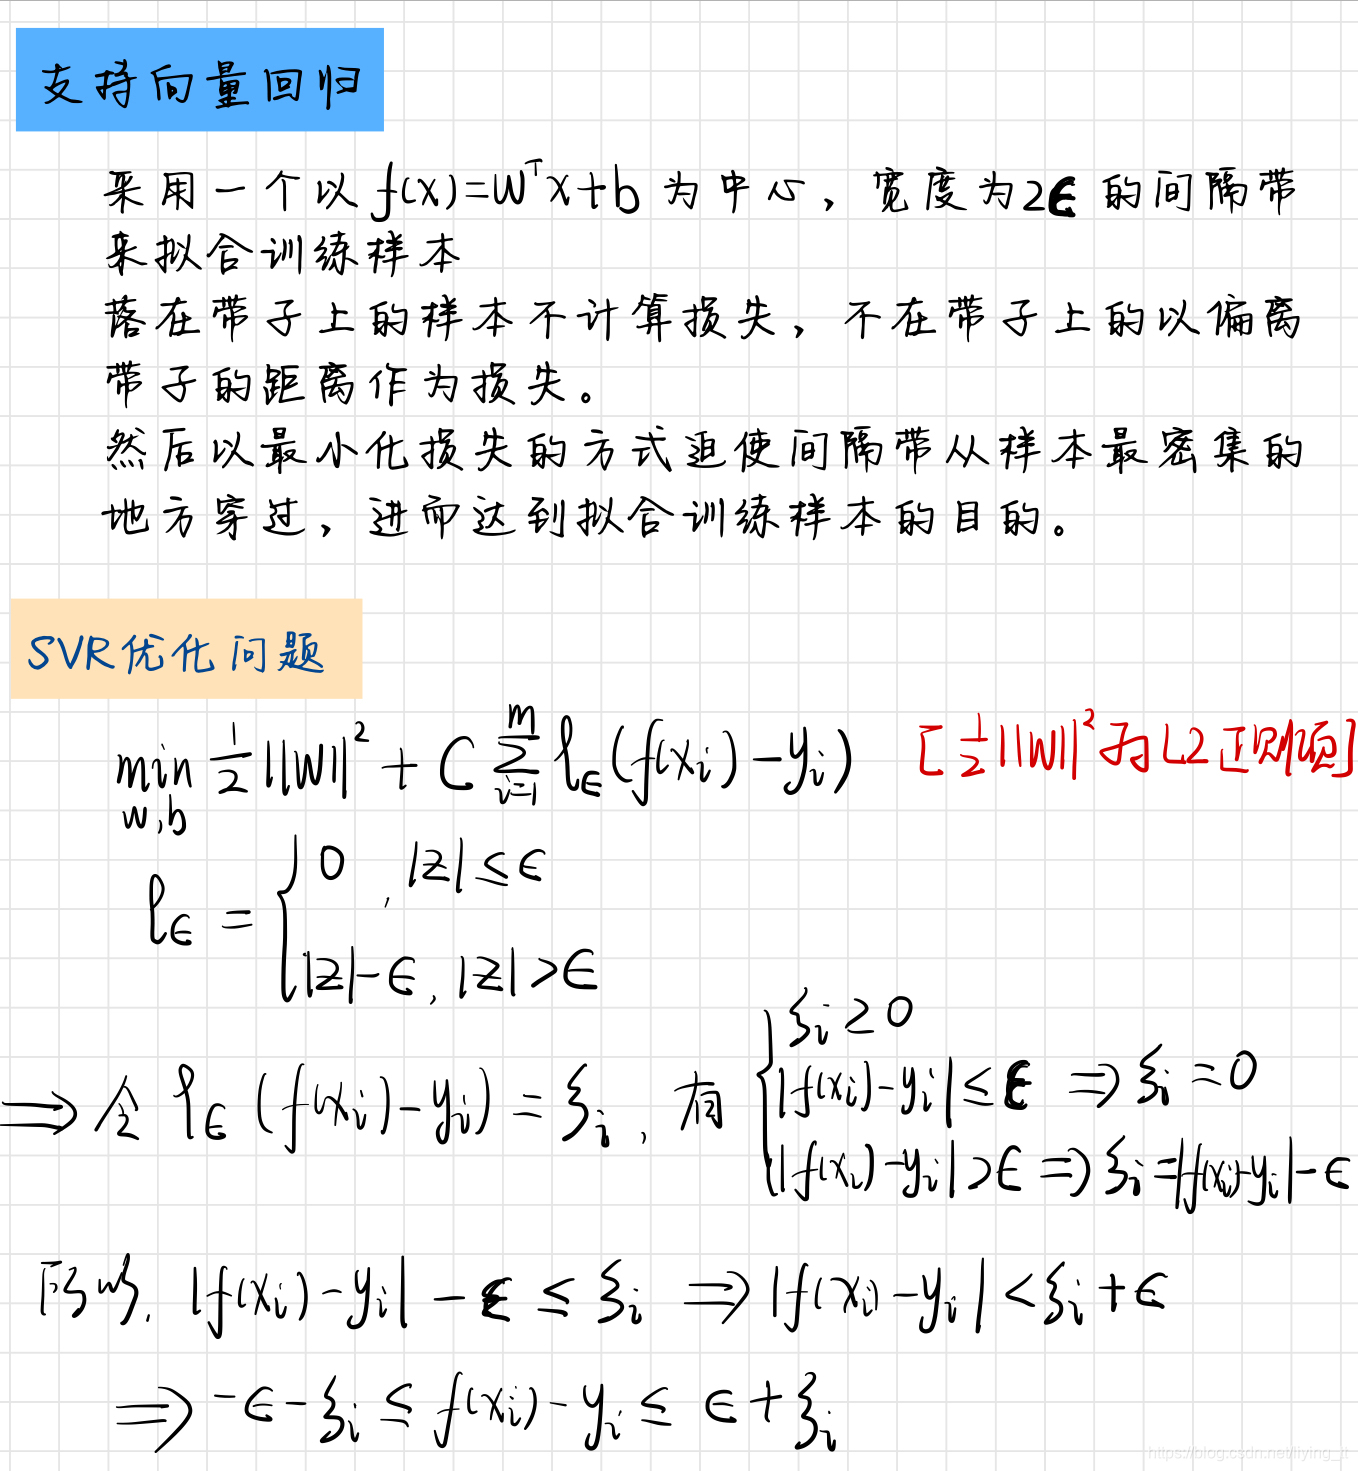 支持向量回归
采用一个以 f(x)=w^T x+b 为中心，宽度为2ϵ 的间隔带
来拟合训练样本
落在带子上的样本不计算损失，不在带子上的以偏离
带子的距离作为损失。
然后以最小化损失的方式迫使间隔带从样本最密集的
地方穿过，进而达到拟合训练样本的目的。
SVR优化问题
min_{w,b} 1/2 ||W||² + C ∑_{i=1}^{m} ℓ_ϵ (f(x_i) - y_i) [1/2 ||W||² 为 L2 正则项]
ℓ_ϵ = { 0 , |z| ≤ ϵ
|z| - ϵ, |z| > ϵ
ξ_i ≥ 0
⇒ 令 ℓ_ϵ (f(x_i) - y_i) = ξ_i, 有 { |f(x_i) - y_i| ≤ ϵ ⇒ ξ_i = 0
|f(x_i) - y_i| > ϵ ⇒ ξ_i = |f(x_i) - y_i| - ϵ
所以, |f(x_i) - y_i| - ϵ ≤ ξ_i ⇒ |f(x_i) - y_i| < ξ_i + ϵ
⇒ -ϵ - ξ_i ≤ f(x_i) - y_i ≤ ϵ + ξ_i